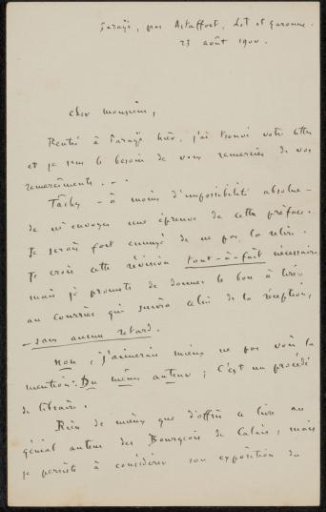 par Astaffort, Lot et Garonne.
23 août 1900.
Cher monsieur,
Rentré à hier, j'ai trouvé votre lettre
et je sens le besoin de vous remercier de vos
remerciements. - .
Tâchez - à moins d'impossibilité absolue -
de m'envoyer une épreuve de cette préface.
Je serais fort ennuyé de ne pas la relire.
Je crois cette révision tout-à-fait nécessaire
mais je promets de donner le bon à tirer
au courrier qui suivra celui de la réception,
- sans aucun retard.
Non, j'aimerais mieux ne pas voir la
mention : Du même auteur ; c'est un procédé
de libraire.
Rien de mieux que d'offrir ce livre au
génial auteur des Bourgeois de Calais, mais
je persiste à considérer son exposition du